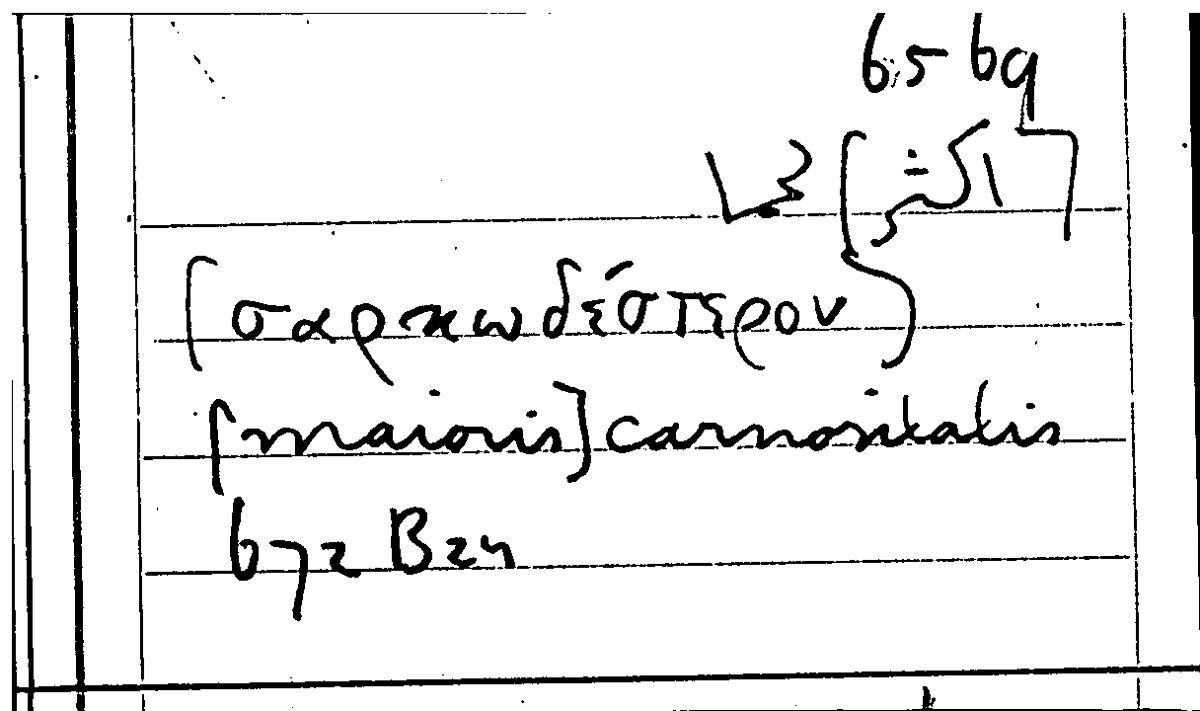 65 69
(σαρκωδέστερον)
[maioris] carnositatis
672 B 24